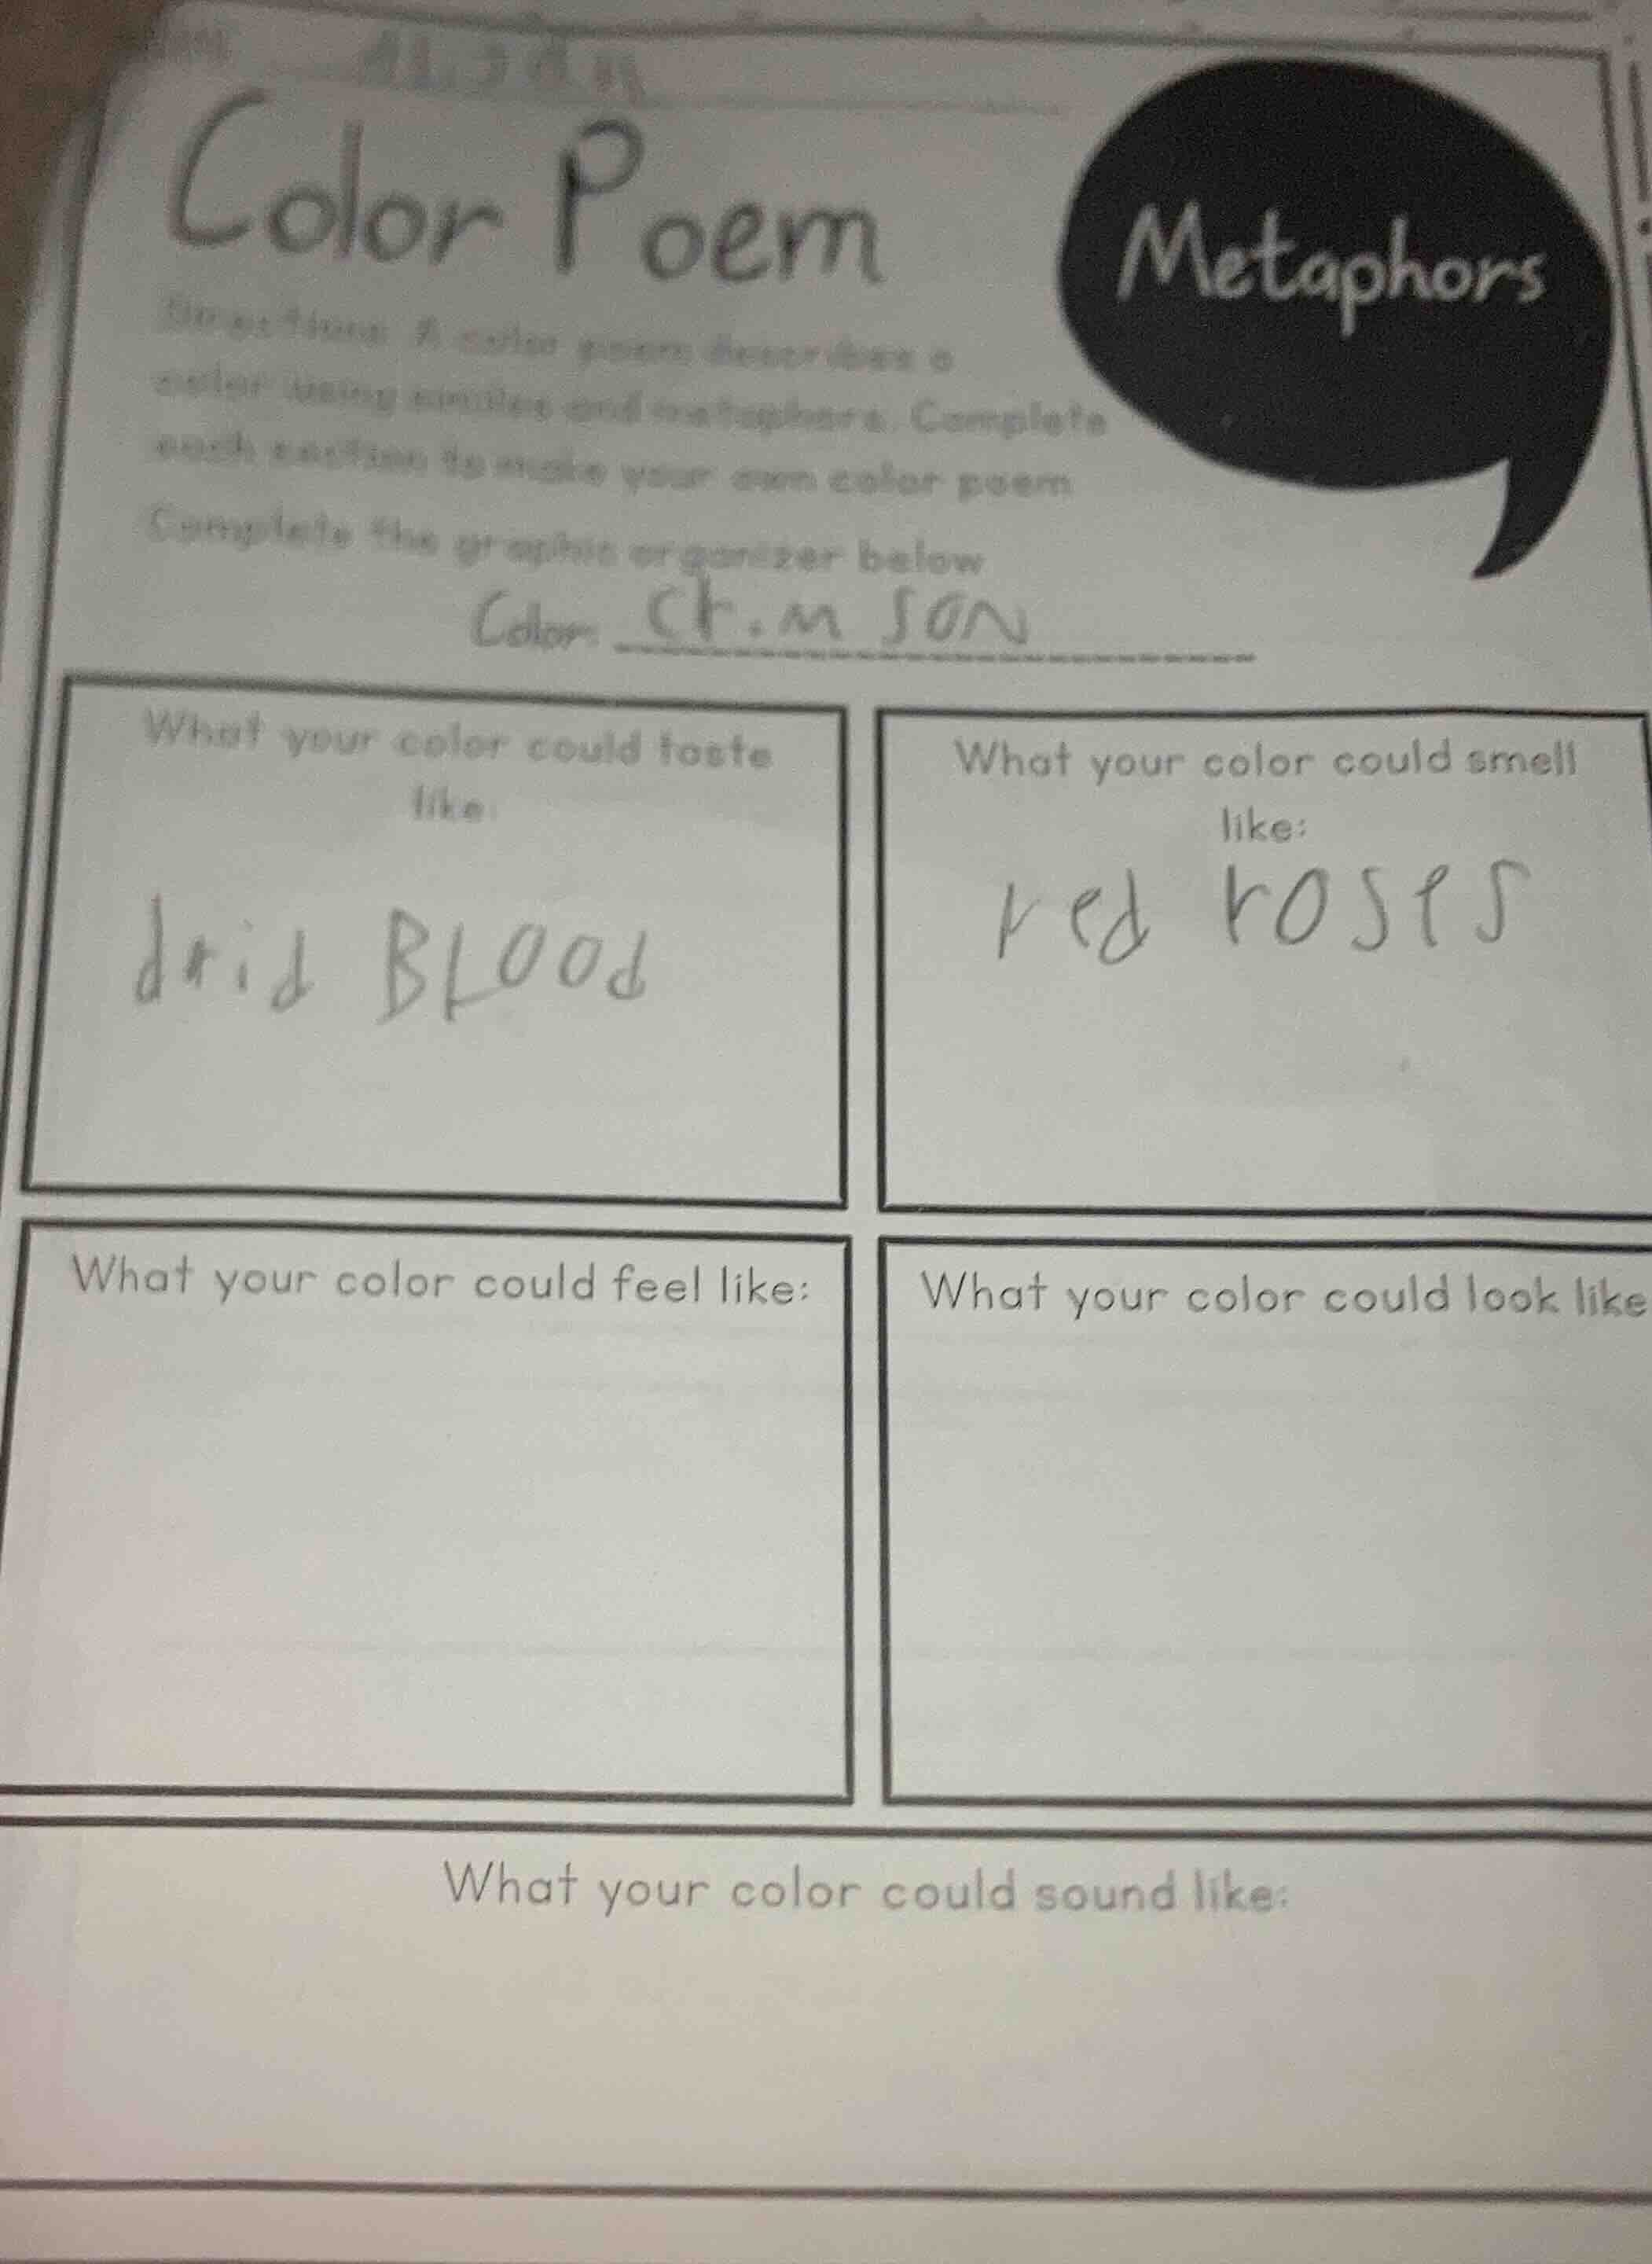 Color Poem
Metaphors
Directions: A color poem describes a
color using similes and metaphors. Complete
each section to make your own color poem
Complete the graphic organizer below
Color: cr.m son
What your color could taste
like:
drid BLOOd
What your color could smell
like:
red roses
What your color could feel like:
What your color could look like
What your color could sound like: